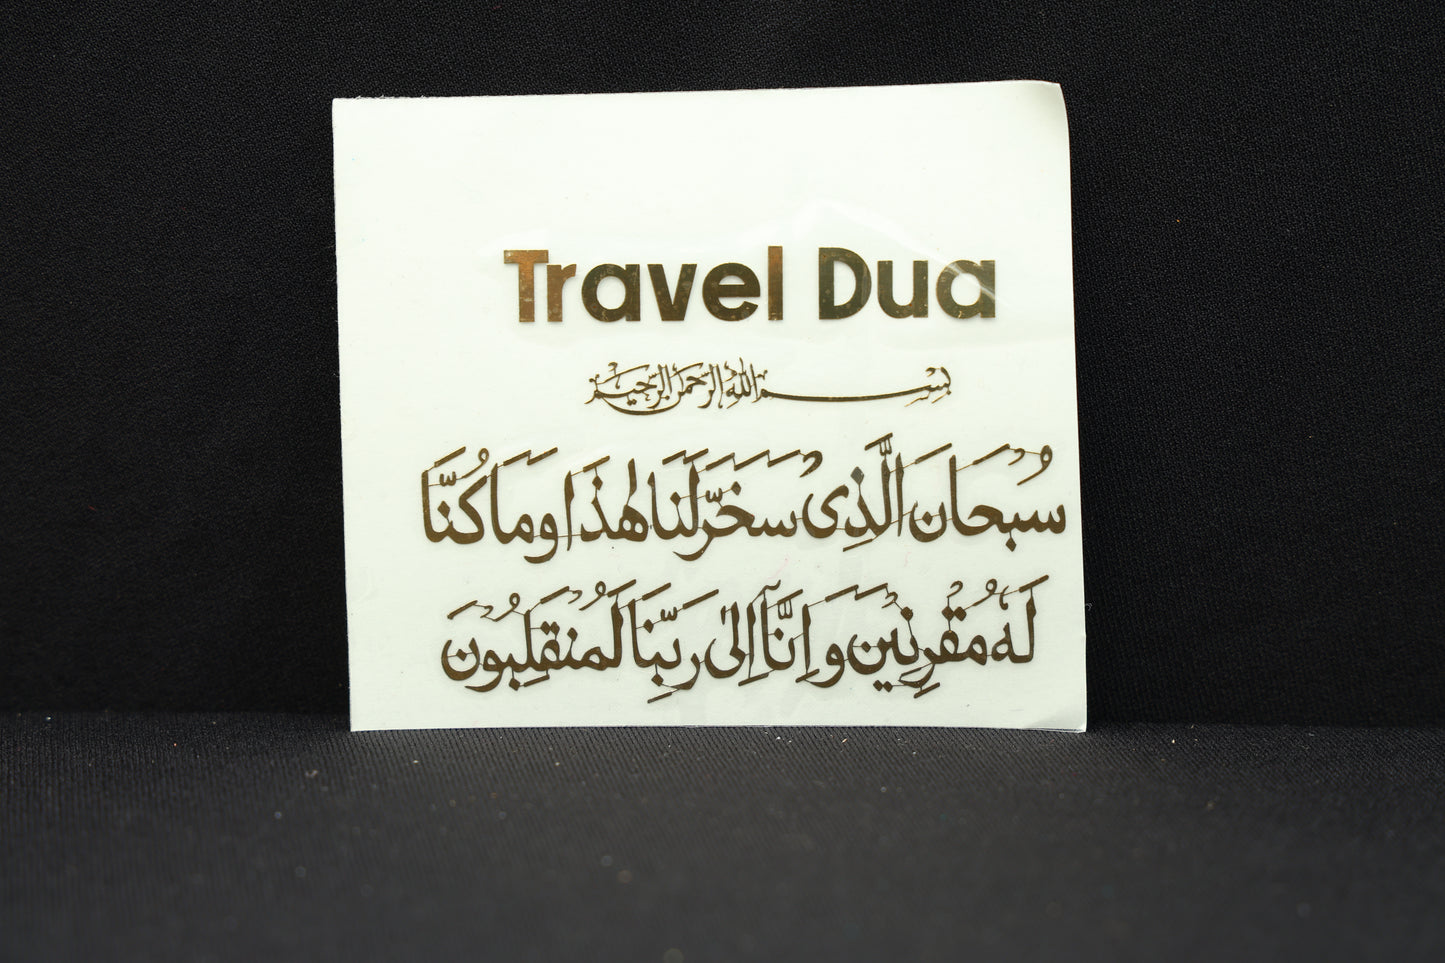 Travel Dua
بِسْمِ اللهِ الرَّحْمٰنِ الرَّحِيْمِ
سُبْحَانَ الَّذِى سَخَّرَ لَنَا هٰذَا وَمَا كُنَّا
لَهٗ مُقْرِنِيْنَ وَاِنَّآ اِلٰى رَبِّنَا لَمُنْقَلِبُوْنَ